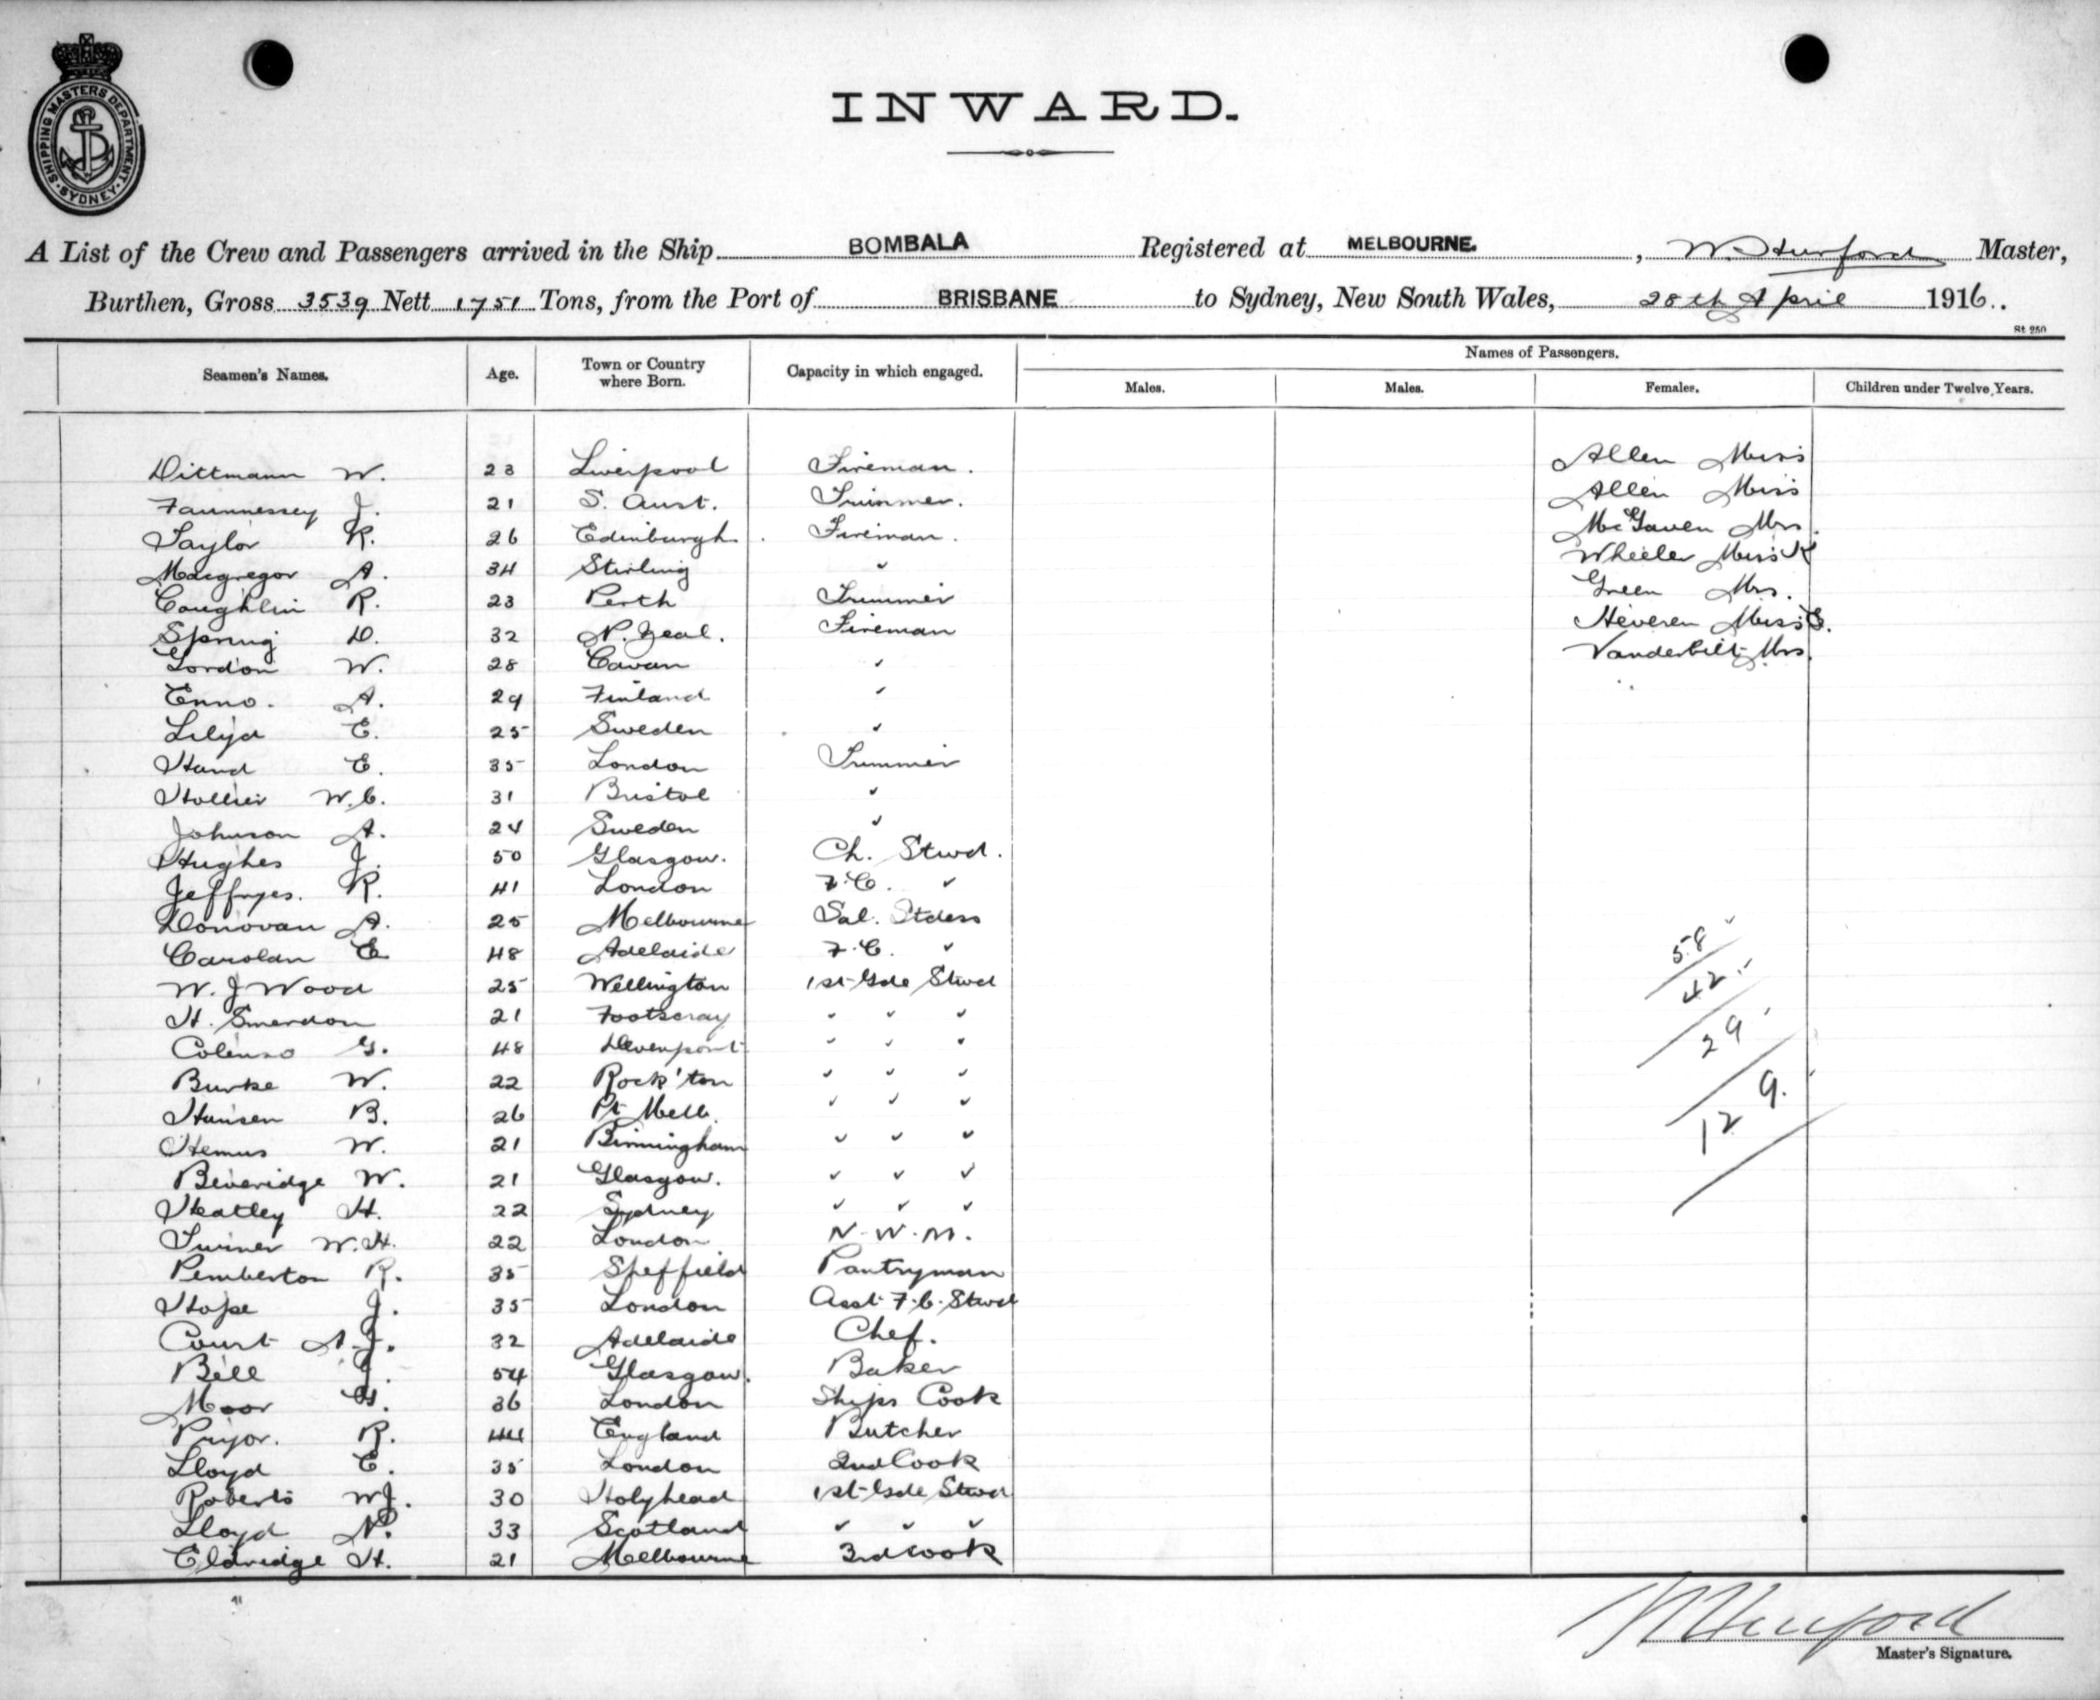 SHIPPING MASTERS DEPARTMENT. SYDNEY
INWARD.
A List of the Crew and Passengers arrived in the Ship BOMBALA Registered at MELBOURNE. , W. Hurford Master,
Burthen, Gross 3539 Nett 1751 Tons, from the Port of BRISBANE to Sydney, New South Wales, 28th April 1916.
St 250
Seamen's Names. Age. Town or Country where Born. Capacity in which engaged. Names of Passengers.
Males. Males. Females. Children under Twelve Years.
Dittmann W. 23 Liverpool Fireman. Allen Miss
Faunnessey J. 21 S. Aust. Trimmer. Allen Miss
Taylor R. 26 Edinburgh. Fireman. McGaven Mrs.
Macgregor A. 34 Stirling " Wheeler Miss K
Coughlin R. 23 Perth Trimmer Green Mrs.
Spring D. 32 N. Zeal. Fireman Heveren Miss E.
Gordon W. 28 Cavan " Vanderbilt Mrs.
Enno. A. 29 Finland "
Lilja E. 25 Sweden "
Hand E. 35 London Trimmer
Hollier W.C. 31 Bristol "
Johnson A. 24 Sweden "
Hughes J. 50 Glasgow. Ch. Stwd.
Jeffryes. R. 41 London F.C. "
Donovan A. 25 Melbourne Sal. Stdess 58
Carolan E 48 Adelaide F.C. " 42
W. J Wood 25 Wellington 1st Gde Stwd
H. Smerdon 21 Footscray " " " 29
Colenso G. 48 Devenport " " "
Burke W. 22 Rock'ton " " " 9.
Hansen B. 26 Pt Melb. " " " 12
Hemus W. 21 Birmingham " " "
Beveridge W. 21 Glasgow. " " "
Heatley H. 22 Sydney " " "
Turner W.H. 22 London N.W.M.
Pemberton R. 35 Sheffield Pantryman
Hope J. 35 London Asst F.C. Stwd
Court A.J. 32 Adelaide Chef.
Bell J. 54 Glasgow. Baker
Moor G. 36 London Ships Cook
Pryor. R. 44 England Butcher
Lloyd E. 35 London 2nd Cook
Roberts WJ. 30 Holyhead 1st Gde Stwd
Lloyd N. 33 Scotland " " "
Eldridge H. 21 Melbourne 3rd Cook
W Hurford
Master's Signature.